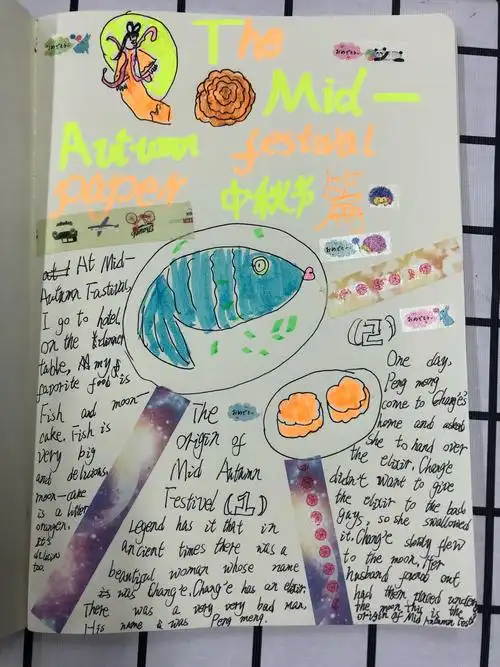 The
Mid-
Autumn festival
paper 中秋节
おめでとう
おめでとう
おめでとう
おめでとう
おめでとう
At Mid-
Autumn Fastival,
I go to hotel,
on the dinner
table, my
favorite food is
Fish and moon-
cake. Fish is
very big
and delicious,
moon-cake
is a litter
orangen.
It's
delicious
too.
The
origin of
Mid Autumn
Festival (1)
Legend has it that in
ancient times there was a
beautiful woman whose name
is was Chang'e. Chang'e has an elixir.
There was a very very bad man.
His name is was Peng meng.
(2)
One day,
Peng meng
come to Chang'e's
home and asked
she to hand over
the elixir. Chang'e
didn't want to give
the elixir to the bad
guys, so she swallowed
it. Chang'e slowly flew
to the moon. Her
husband found out
had them placed under
the moon this is the
origin of Mid Autumn